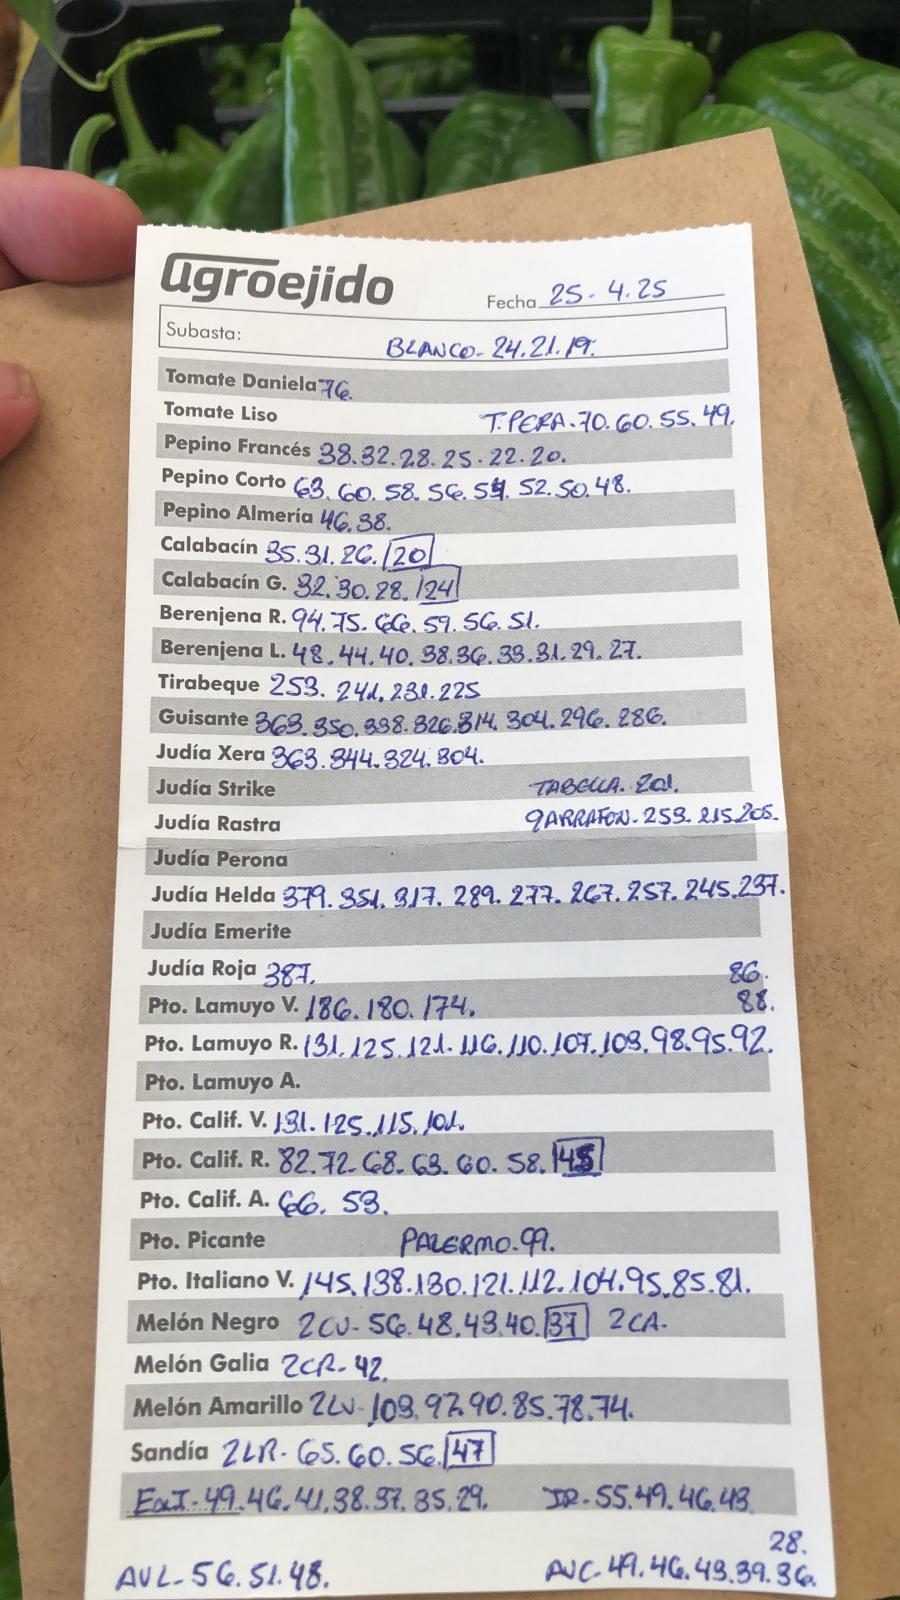 agroejido
Fecha 25.4.25
Subasta:
BLANCO-24.21.19.
Tomate Daniela 76.
Tomate Liso T.PERA.70.60.55.49.
Pepino Francés 38.32.28.25.22.20.
Pepino Corto 63.60.58.56.54.52.50.48.
Pepino Almería 46.38.
Calabacín 35.31.26.20
Calabacín G. 32.30.28.24
Berenjena R. 94.75.66.59.56.51.
Berenjena L. 48.44.40.38.36.33.31.29.27.
Tirabeque 253.241.231.225
Guisante 363.350.338.326.314.304.296.286.
Judía Xera 363.344.324.304.
Judía Strike TABELLA.201.
Judía Rastra GARRAFON-253.215.205.
Judía Perona
Judía Helda 379.351.317.289.277.267.257.245.237.
Judía Emerite
Judía Roja 387. 86.
Pto. Lamuyo V. 186.180.174. 88.
Pto. Lamuyo R. 131.125.121.116.110.107.103.98.95.92.
Pto. Lamuyo A.
Pto. Calif. V. 131.125.115.101.
Pto. Calif. R. 82.72.68.63.60.58.
Pto. Calif. A. 66.53.
Pto. Picante PALERMO.99.
Pto. Italiano V. 145.138.130.121.112.104.95.85.81.
Melón Negro 2CV-56.48.43.40.37 2CA.
Melón Galia 2CR-42.
Melón Amarillo 2LV-103.97.90.85.78.74.
Sandía 2LR-65.60.56.47
ExI-49.46.41.38.37.35.29. IR-55.49.46.43.
28.
AVL-56.51.48. AVC-49.46.43.39.36.